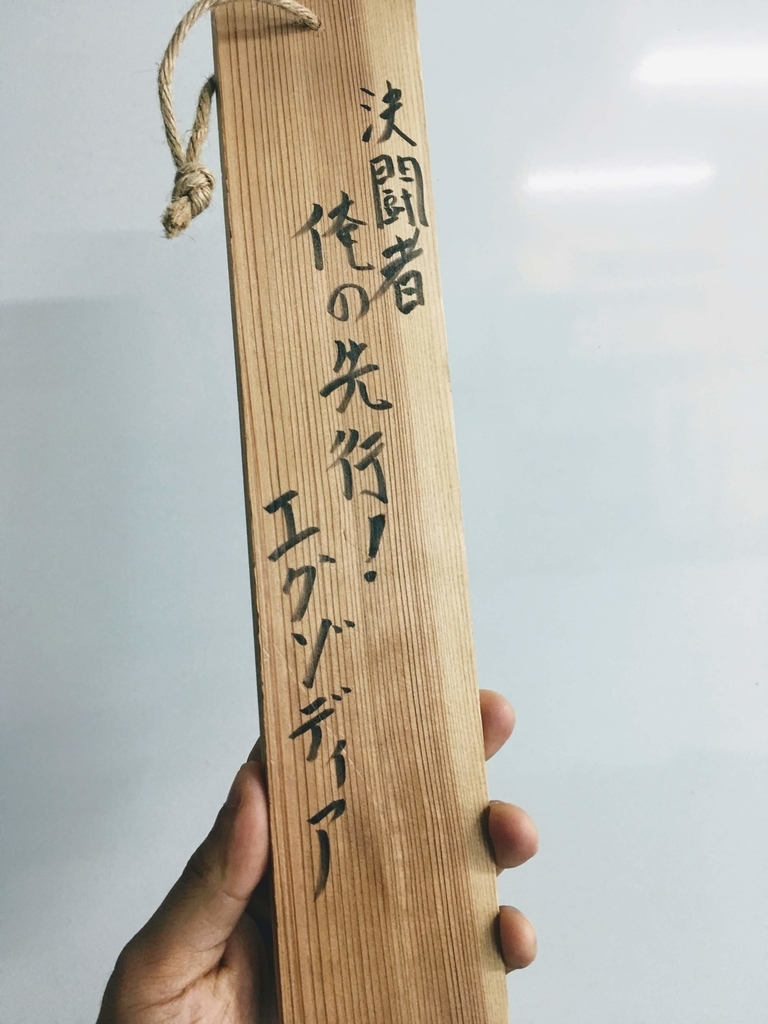 決闘者
俺の先行!
エグゾディア